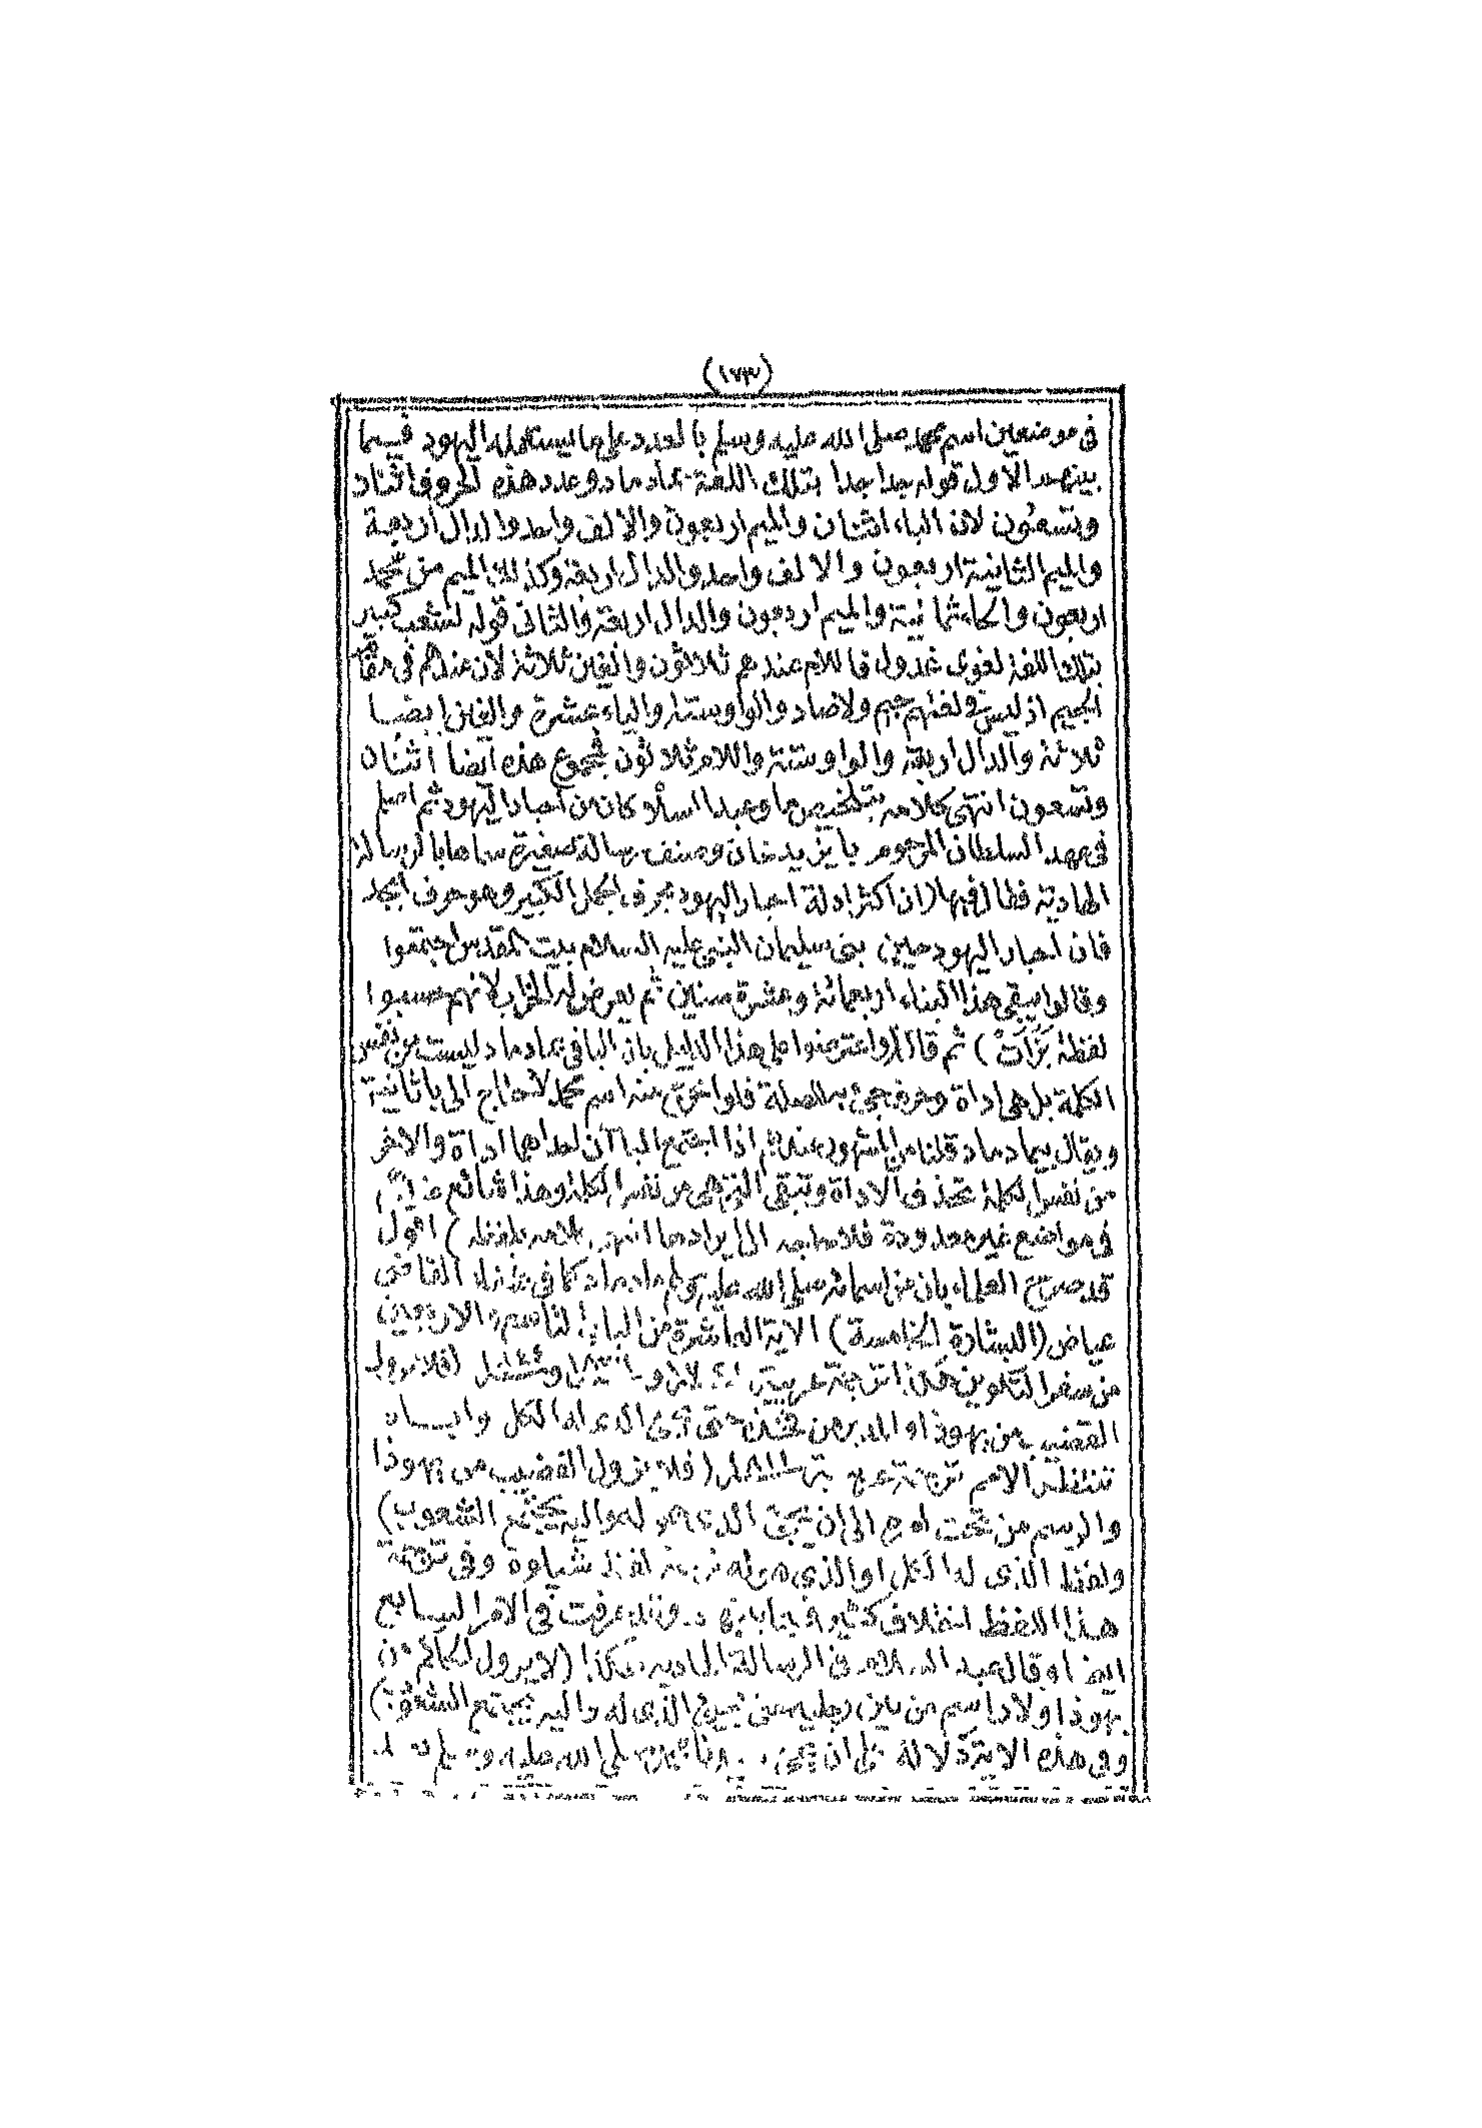 (١٧٣)
في موضعين اسم محمد صلى الله عليه وسلم بالعدد على ما يستعمله اليهود فيما
بينهم الاول قوله جدا جدا بتلك اللغة بماد ماد وعدد هذه الحروف اثنان
وتسعون لان الباء اثنان والميم اربعون والالف واحد والدال اربعة
والميم الثانية اربعون والالف واحد والدال اربعة وكذلك الميم من محمد
اربعون والحاء ثمانية والميم اربعون والدال اربعة والثاني قوله لشعب كبير
بتلك اللغة لغوى غدول فاللام عندهم ثلاثون والغين ثلاثة لانه عندهم في مقام
الجيم اذ ليس في لغتهم جيم ولا صاد والواو ستة والياء عشرة والغين ايضا
ثلاثة والدال اربعة والواو ستة واللام ثلاثون فمجموع هذه ايضا اثنان
وتسعون انتهى كلامه بتلخيص ما وعبد السلام كان من احبار اليهود ثم اسلم
في عهد السلطان المرحوم بايزيد خان وصنف رسالة صغيرة سماها بالرسالة
الهادية فقال فيها (ان اكثر ادلة احبار اليهود بحرف الجمل الكبير وهو حرف ابجد
فان احبار اليهود حين بنى سليمان النبي عليه السلام بيت المقدس اجتمعوا
وقالوا يبقى هذا البناء اربعمائة وعشرة سنين ثم يعرض له الخراب لانهم حسبوا
لفظة بزأت) ثم قال (واعترضوا على هذا الدليل بان الباء في بماد ماد ليست من نفس
الكلمة بل هي اداة وحرف جيء به للصلة فلو اخرج منه اسم محمد لاحتاج الى باء ثانية
ويقال ببماد ماد قلنا من المشهور عندهم اذا اجتمع الباآن احداهما اداة والاخر
من نفس الكلمة تحذف الاداة وتبقى التي هي من نفس الكلمة وهذا شائع عندهم
في مواضع غير معدودة فلا حاجة الى ايرادها انتهى كلامه بلفظه) اقول
قد صرح العلماء بان من اسمائه صلى الله عليه وسلم ماد ماد كما في شفاء القاضي
عياض (البشارة الخامسة) الآية العاشرة من الباب التاسع والاربعين
من سفر التكوين هكذا ترجمة عربية سنة ١٧٢٢ وسنة ١٨٣١ وسنة ١٨٤٤ (فلا يزول
القضيب من يهوذا والمدبر من فخذه حتى يجيء الذي له الكل واياه
تنتظر الامم) ترجمة عربية سنة ١٨١١ (فلا يزول القضيب من يهوذا
والرسم من تحت امره الى ان يجيء الذي هو له واليه يجتمع الشعوب)
ولفظ الذي له الكل او الذي هو له ترجمة لفظ شيلوه وفي ترجمة
هذا اللفظ اختلاف كثير فيما بينهم وقد عرفت في الامر السابع
ايضا وقال عبد السلام في الرسالة الهادية هكذا (لا يزول الحاكم من
يهوذا ولا راسم من بين رجليه حتى يجيء الذي له واليه يجتمع الشعوب)
وفي هذه الآية دلالة على ان يجيء سيدنا محمد صلى الله عليه وسلم